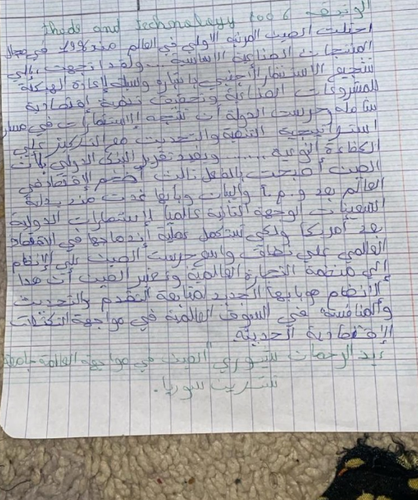 thude and technology 2006 الوثيقة
احتلت الصين المرتبة الأولى في العالم منذ 1996 في مجال
المنتجات الصناعية الأساسية ... ولقد اتجهت إلى
تشجيع الاستثمار الأجنبي باعتباره وسيلة لإعادة الهيكلة
للمشروعات الصناعية وتحقيق تنمية اقتصادية
شاملة وحرصت الدولة أن تتجه الإستثمارات في مسار
استراتيجية التنمية والتحديث مع التركيز على
الكفاءة النوعية ...... ويفيد تقرير البنك الدولي بأن
الصين أصبحت بالفعل ثالث أضخم الإقتصاد في
العالم بعد و.م.أ واليابان وبأنها غدت منذ بداية
التسعينات الوجهة الثانية عالميا للإستثمارات الدولية
بعد أمريكا ولكي تستكمل عملية إندماجها في الاقتصاد
العالمي على نطاق واسع حرصت الصين على الإنظام
إلى منظمة التجارة العالمية وتعتبر الصين أن هذا
الإنظام هو بابها الجديد لمتابعة التقدم والتحديث
والمنافسة في السوق العالمية في مواجهة التكتلات
الإقتصادية الحديثة.
عبد الرحمان تيشوري الصين في مواجهة العولمة جامعة
تشرين سوريا.